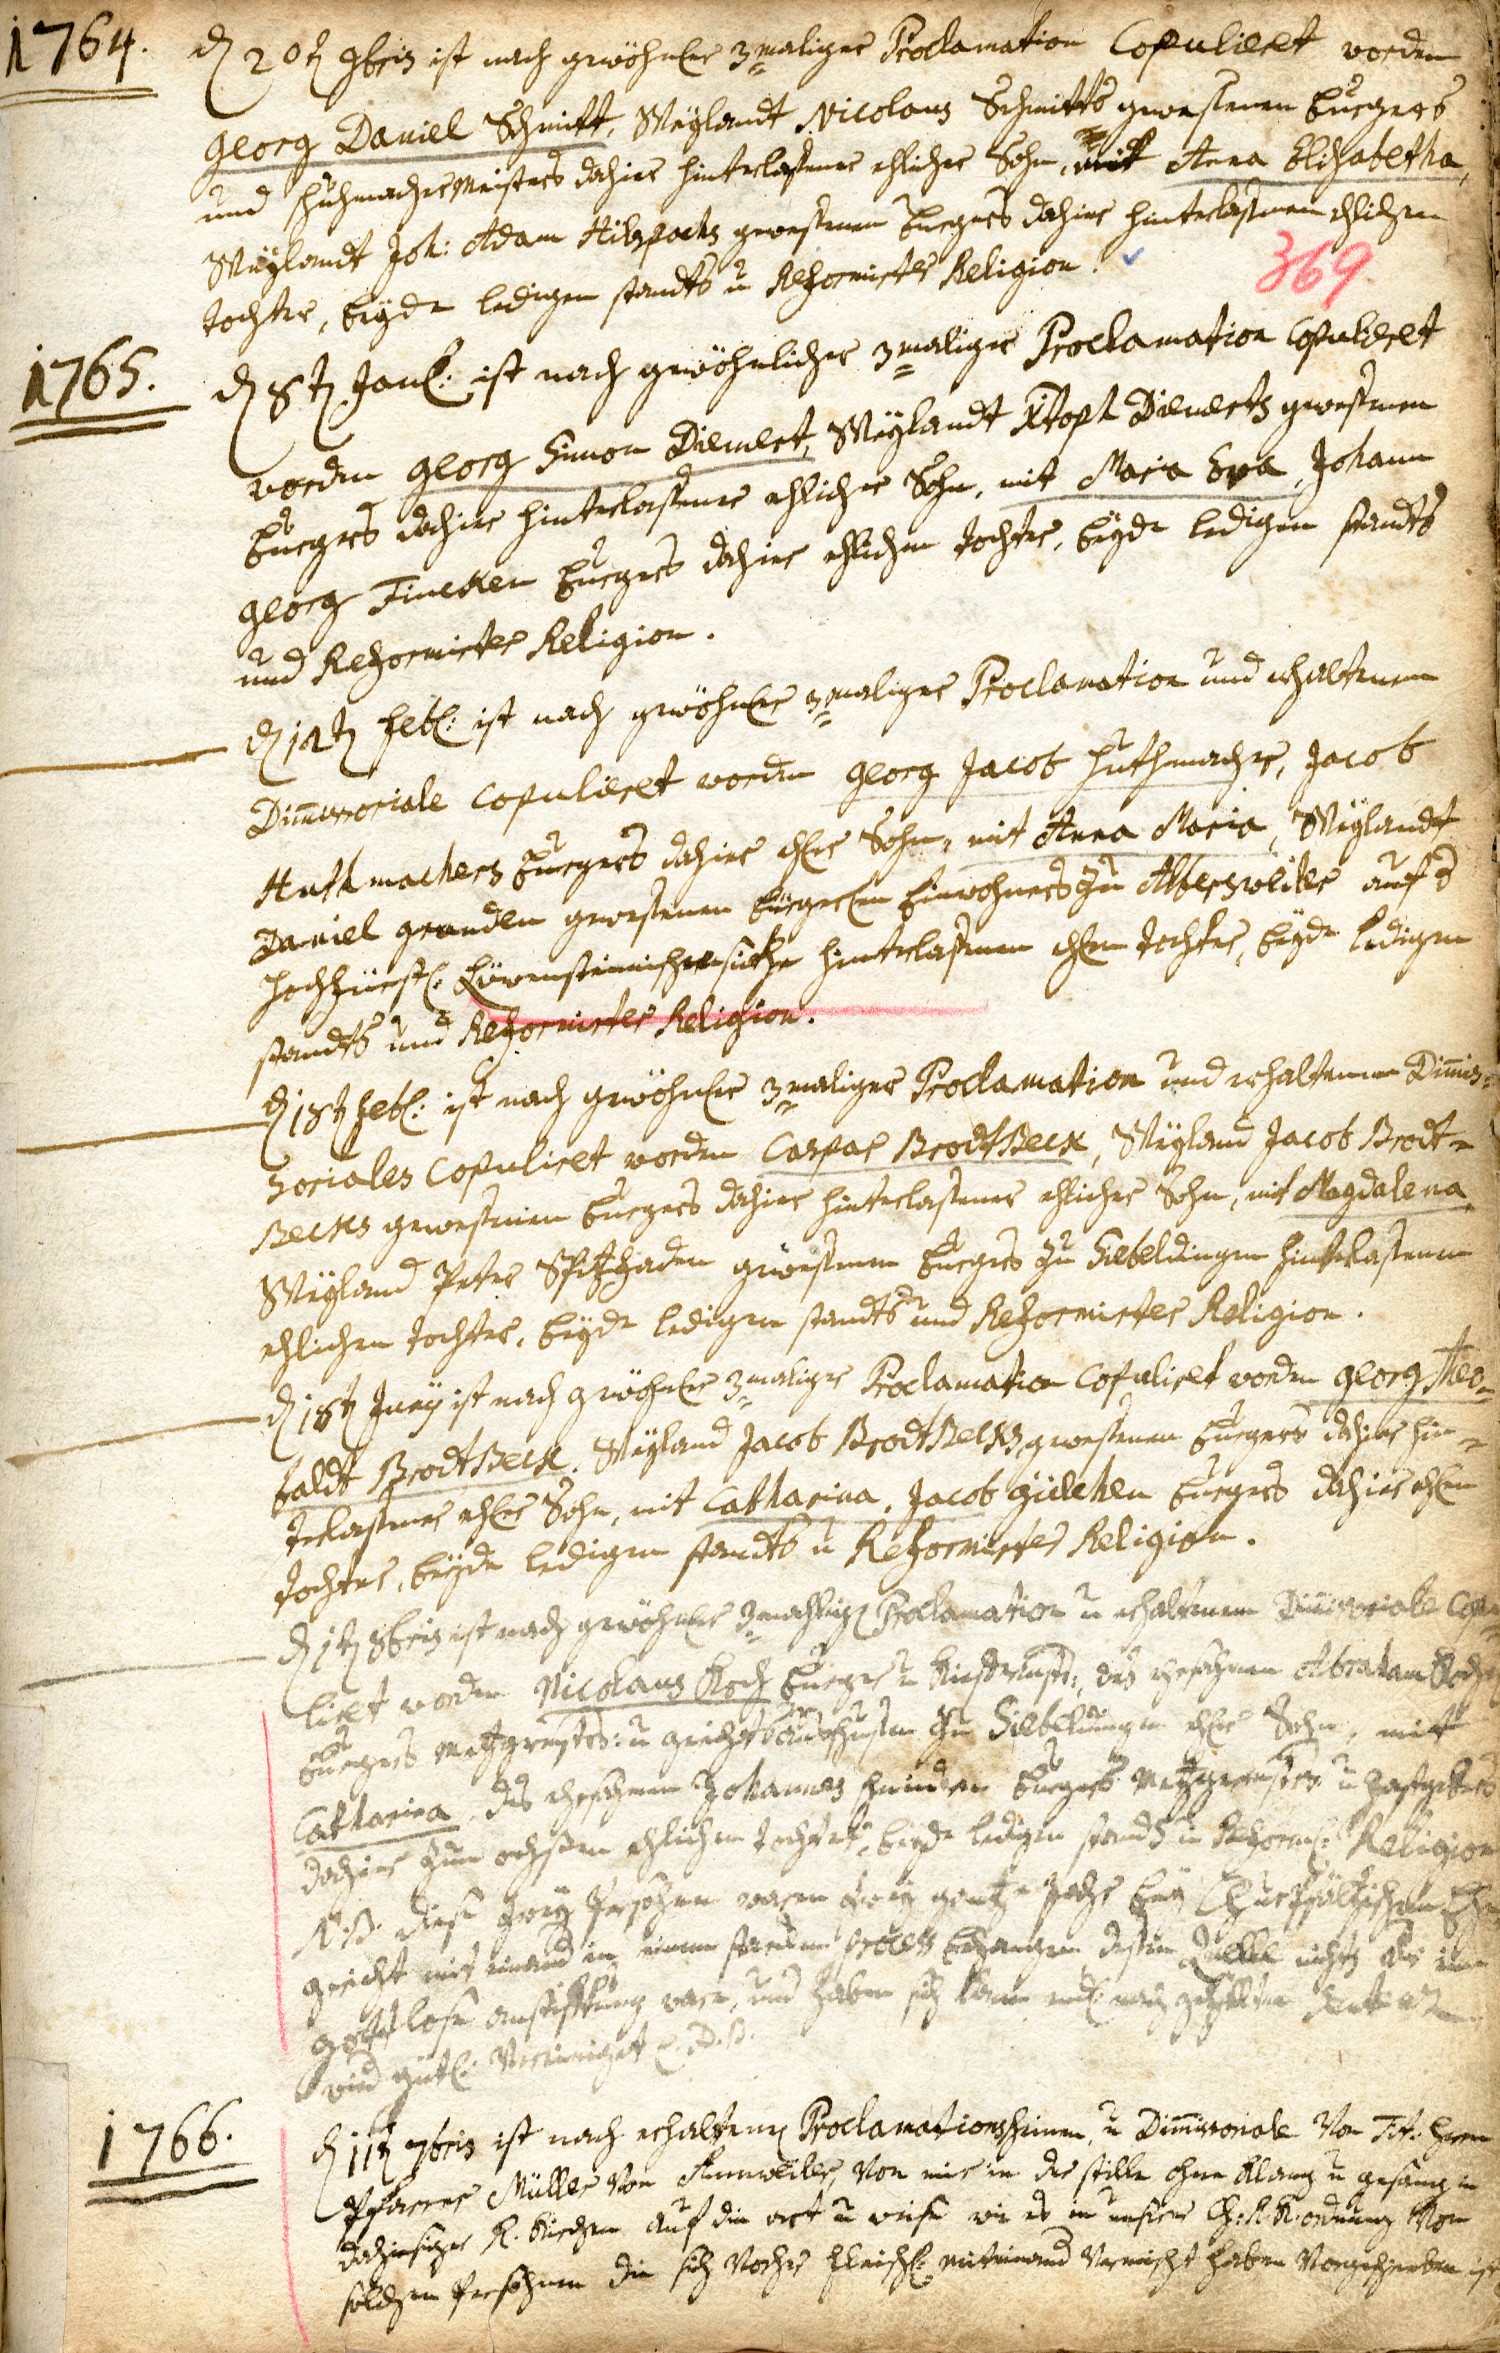 1764.
d 20t 9bris ist nach gewöhnler 3maliger Proclamation Copuliret worden
Georg Daniel Schmitt, Weylandt Nicolaus Schmitts gewesenen burgers
und schuhmachermeisters dahier hinterlassener ehlicher Sohn, mit Anna Elisabetha,
Weylandt Joh: Adam Hilspachs gewesenen burgers dahier hinterlassenen ehlichen
tochter, beyde ledigen standts u Reformirter Religion.
369
1765.
d 8t Janl: ist nach gewöhnlicher 3maliger Proclamation Copuliret
worden Georg Simon Dienert, Weylandt Xstoph Dienerts gewesenen
burgers dahier hinterlassener ehlicher Sohn, mit Maria Eva, Johann
Georg Fincken burgers dahier ehlichen tochter, beyde ledigen standts
und Reformirter Religion.
d 12t febl: ist nach gewöhnler 3maliger Proclamation und erhaltenem
Dimissoriale Copuliret worden Georg Jacob huthmacher, Jacob
Huthmachers burgers dahier ehler Sohn, mit Anna Maria, Weylandt
Daniel gewesenen Einwohners zu Albersweiler auf
hochfürstl: Löwensteinischer seithe hinterlassenen ehlen tochter, beyde ledigen
standts und Reformirter Religion.
d 18t febl: ist nach gewöhnler 3maliger Proclamation und erhaltenem Dimis=
soriales Copuliret worden Caspar BrodtBeck, Weyland Jacob Brodt=
Becks gewesenen burgers dahier hinterlassener ehlicher Sohn, mit Magdalena
Weyland Peter Spitzfaden gewesenen burgers zu Siebeldingen hinterlassenen
ehlichen tochter, beyde ledigen standts und Reformirter Religion.
d 18t Juny ist nach gewöhnler 3maliger Proclamation Copuliret worden Georg Theo=
baldt BrodtBeck, Weyland Jacob BrodtBecks, gewesenen burgers dahier hin=
terlassener ehler Sohn, mit Catharina, Jacob Gülchen burgers dahier ehlen
tochter, beyde ledigen standts u Reformirter Religion.
d 1t 8bris ist nach gewöhnler 3mahlig Proclamation u erhaltenem Dimissoriale Copu=
liret worden Nicolaus Koch burger u des ehrsahmen Abraham Kochs
burgers Metzger u gerichts zu Siebeldingen ehler Sohn, mit
Catharina, des ehrsahmen Johannes burgers Metzger u Gastgebers
dahier zum ochsen ehlichen tochter, beyde ledigen stands u Reforml: Religion
N.B. diese zwey Persohnen waren zwey gantze Jahr bey Churpfältzischem Ehe
gericht mit einand in einem process befangen dessen Quelle nichts als eine
gottlose anstifftung ware, und haben sich nach
wied gütl: Vereiniget
1766.
d 11t 7bris ist nach erhaltenem Proclamationsschein, u Dimissoriale Von Tit: herrn
Pfarrer Müller Von Annweiler, Von mir in der stille ohne klang u gesang in
dahiesiger K. Kirchen auf die art u weise wie es in unserer Ch: K. K. ordnung Von
solchen Persohnen die sich Vorher fleischl: miteinand Vermischt haben Vorgeschrieben ist